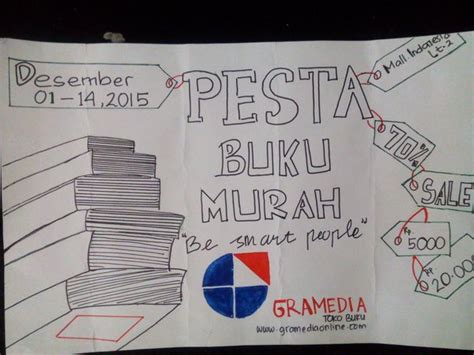 Desember
01-14,2015
PESTA
BUKU
MURAH
"Be smart people"
GRAMEDIA
TOKO BUKU
www.gramediaonline.com
Mall Indonesia
Lt.2
70%
SALE
Rp
5000
Rp
20.000